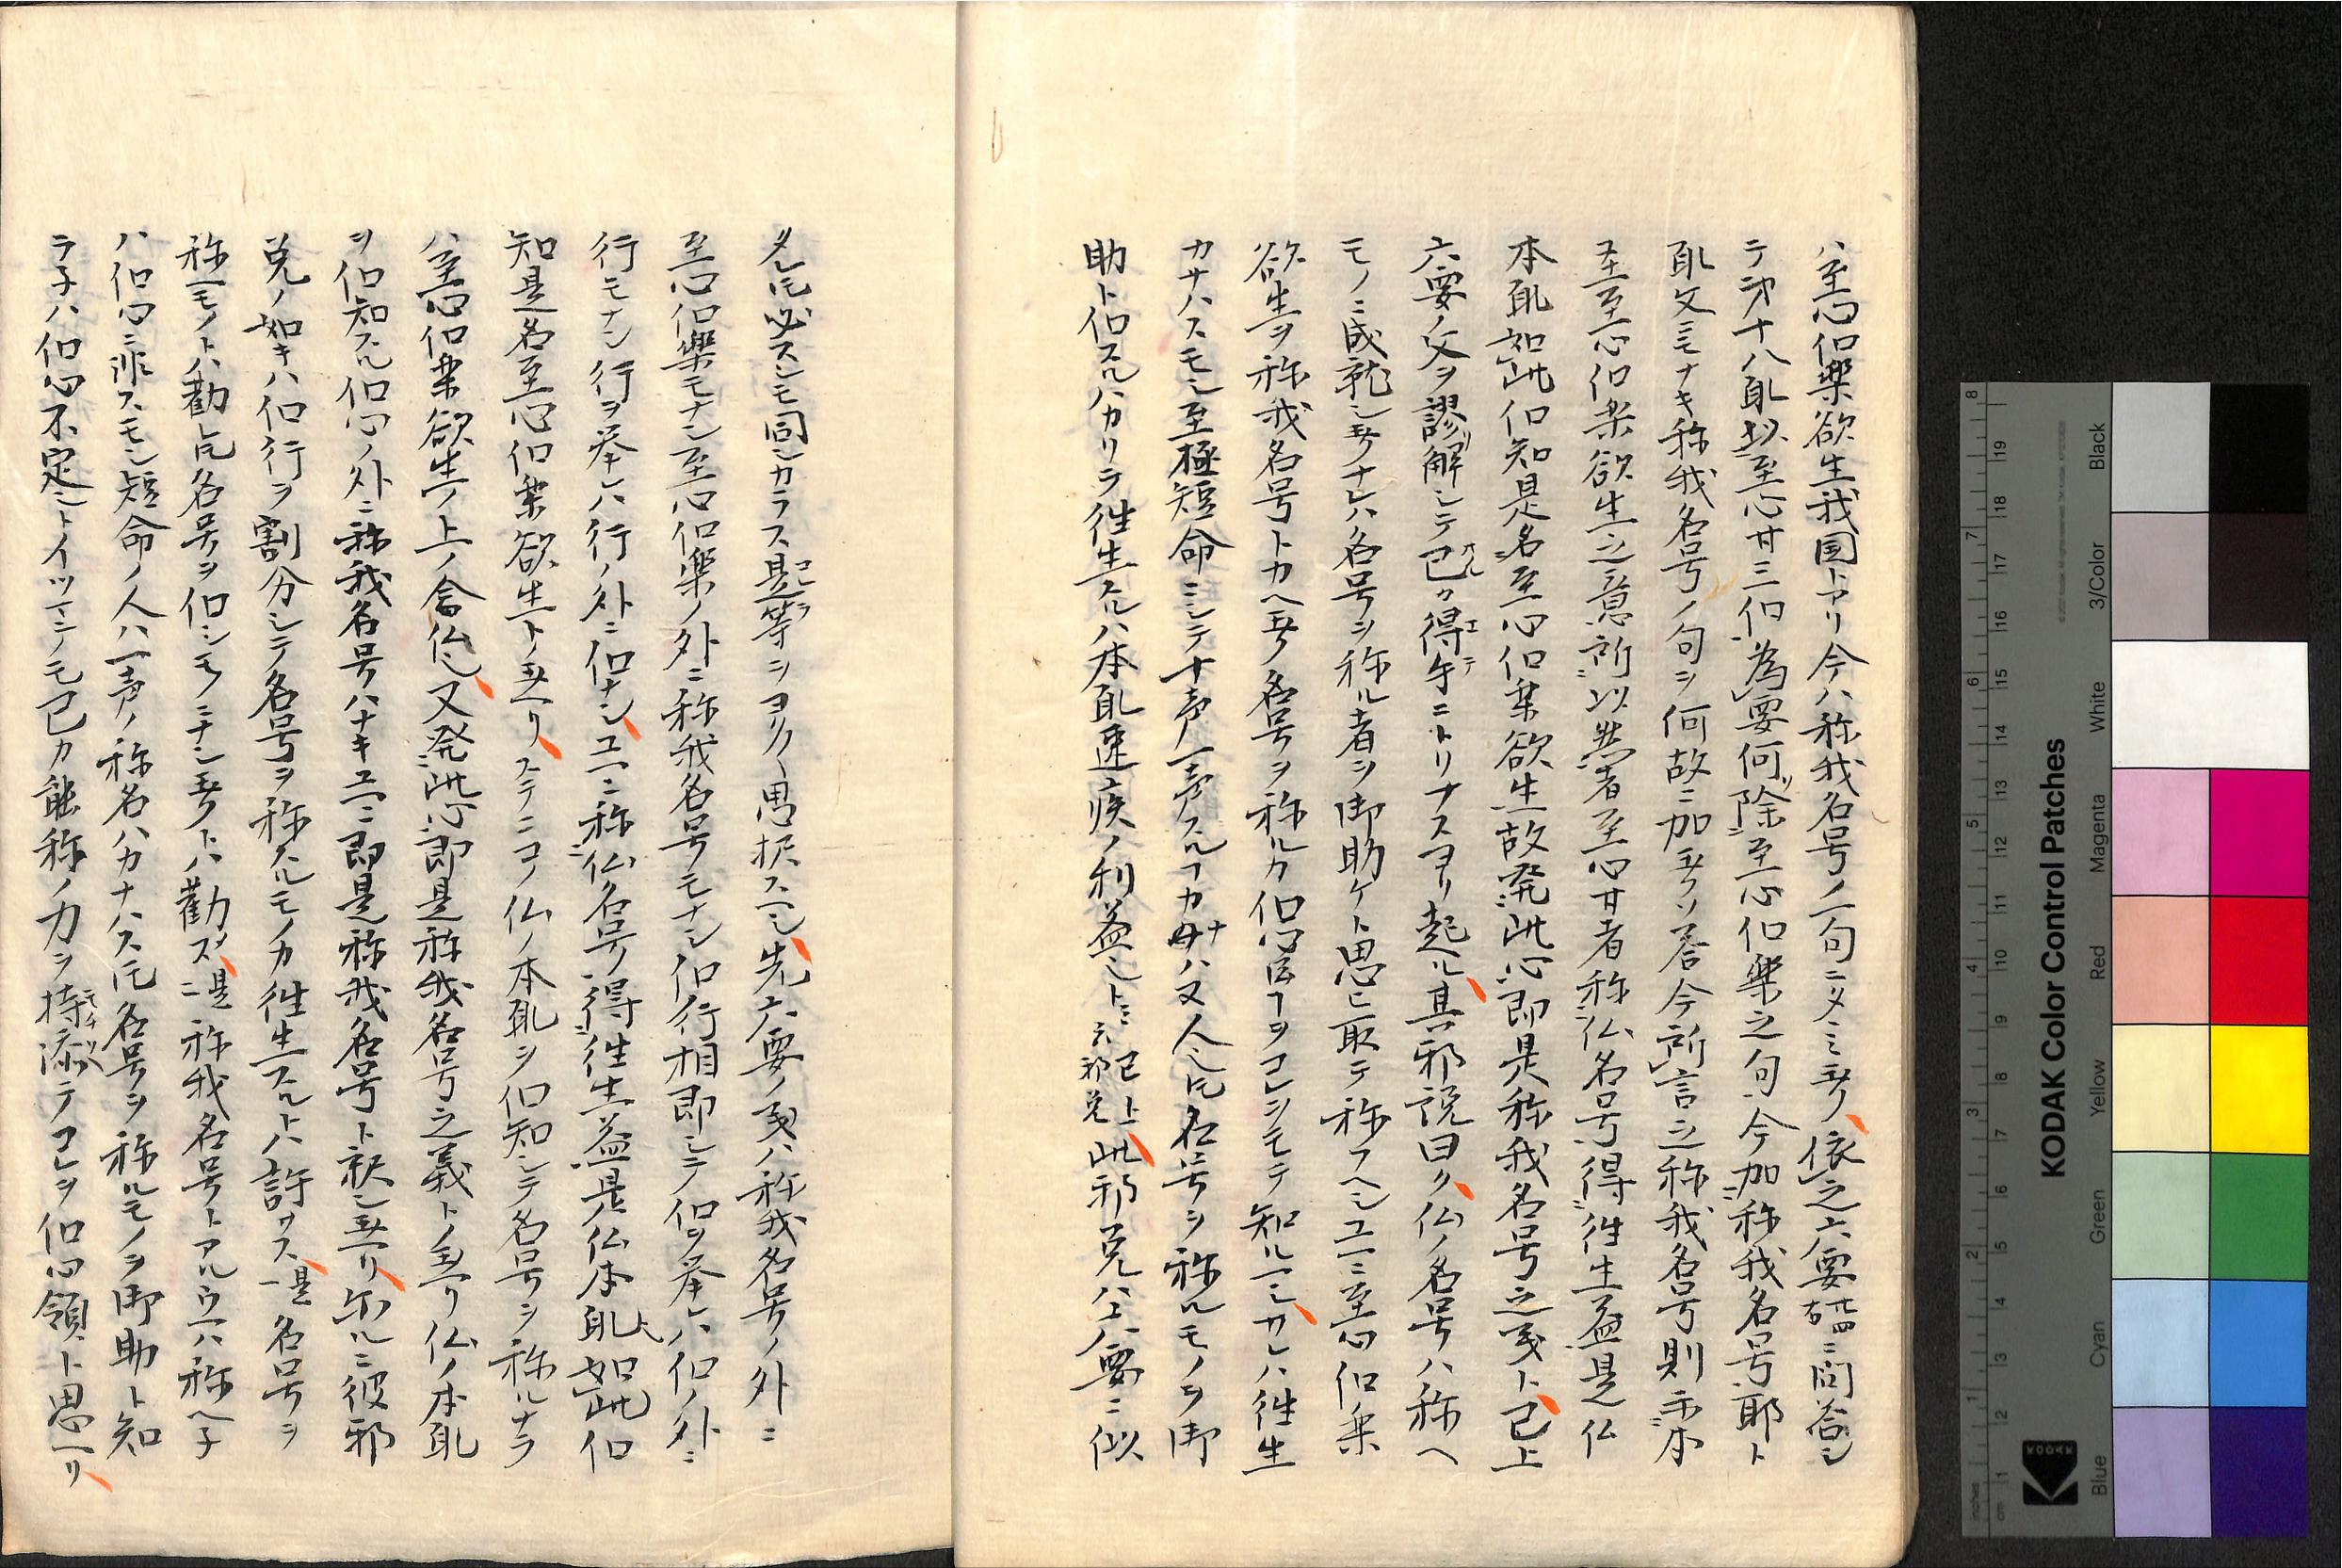 ハ至心信樂欲生我国トアリ今ハ称我名号ノ一句ニタヽミ玉ヘリ依之六要四十四右ニ問答シ
テ第十八願以至心等三信為要何除至心信樂之句今加称我名号耶ト
願文ニモナキ称我名号ノ句ヲ何故ニ加玉フソ答今所言之称我名号則示本
至至心信楽欲生之意所以然者至心等者称仏名号得往生益是仏
本願如此信知是名至心信楽欲生故発此心即是称我名号之義ト已上
六要ノ文ヲ謬解シテ己カ得手ニトリナスヨリ起ル其邪説曰ク仏ノ名号ハ称ヘ
モノニ成就シ玉フナレハ名号ヲ称ル者ヲ御助ケト思ヒ取テ称フヘシ爰ニ至心信楽
欲生ヲ称我名号トカヘ玉フ名号ヲ称ルカ信心ナルコトヲコレヲモテ知ルヘシカレハ往生
カナハスモシ至極短命ニシテ十声一声スルコトカナハヌ人ヘ氏名号ヲ称ルモノヲ御
助ト信スルハカリテ往生スルハ本願速疾ノ利益ト已上邪見此邪見ハ六要ニ似
タレ𪜈必スシモ同シカラス是等ヲヨク〱思択スヘシ先六要ノ義ハ称我名号ノ外ニ
至心信樂モナシ至心信樂ノ外ニ称我名号モナシ信行相即シテ信ヲ挙レハ信ノ外ニ
行モナシ行ヲ挙レハ行ノ外ニ信ナシ爰ニ称仏名号得往生益是仏本願如此信
知是名至心信楽欲生ト玉ヘリステニコノ仏ノ本願ヲ信知シテ名号ヲ称ルナラ
ハ至心信楽欲生ノ上ノ念仏也又発此心即是称我名号之義トノ玉ヘリ仏ノ本願
ヲ信知スル信心ノ外ニ称我名号ハナキユヘニ即是称我名号ト釈シ玉ヘリ尓ルニ彼邪
見ノ如キハ信行ヲ割分シテ名号ヲ称スルモノカ往生スルトハ許サス是名号ヲ
称ヘモノトハ勸𪜈名号ヲ信シモノニナシ玉フトハ勸メス是称我名号トアルウヘハ称ヘ子
ハ信心ニ非スモシ短命ノ人ハ一声ノ称名ハカナハス𪜈名号ヲ称ルモノヲ御助ト知
ラ子ハ信心不定シトイツニシモ己カ能称ノ力ヲ持添テコレヲ信心領ト思ヘリ